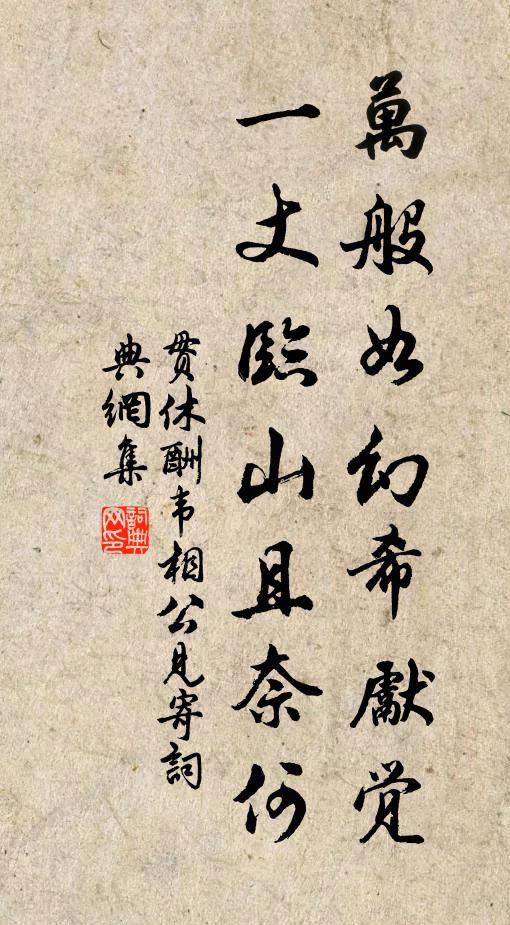 萬般如幻希獻覚
一丈臨山且奈何
貫休酬韦相公見寄詞
典網集
詞典网印